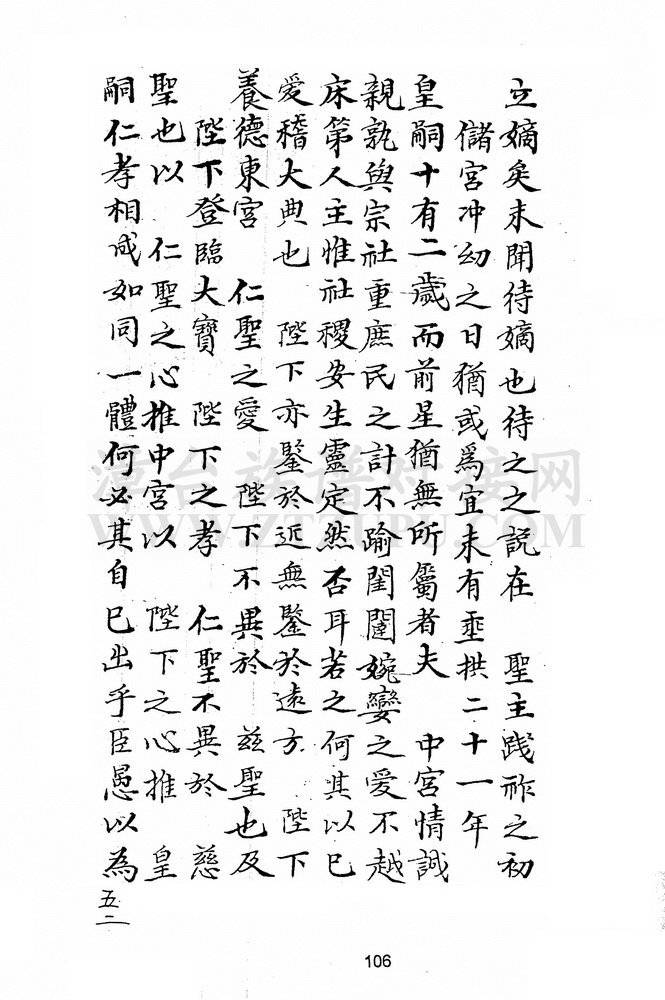 立嫡矣未聞待嫡也待之之説在 聖主踐祚之初
儲宮冲幼之日猶或爲宜未有垂拱二十一年
皇嗣十有二歲而前星猶無所屬者夫 中宮情誠
親孰與宗社重庶民之計不踰閨闥婉孌之愛不越
床第人主惟社稷安生靈定然否耳若之何其以已
愛稽大典也 陛下亦鑒於近無鑒於遠方 陛下
養德東宮 仁聖之愛 陛下不異於 兹聖也及
陛下登臨大寶 陛下之孝 仁聖不異於 慈
聖也以 仁聖之心推中宮以 陛下之心推 皇
嗣仁孝相成如同一體何必其自已出乎臣愚以為
五二
106
漳台族谱对接网
WWW.ZTZUPU.COM